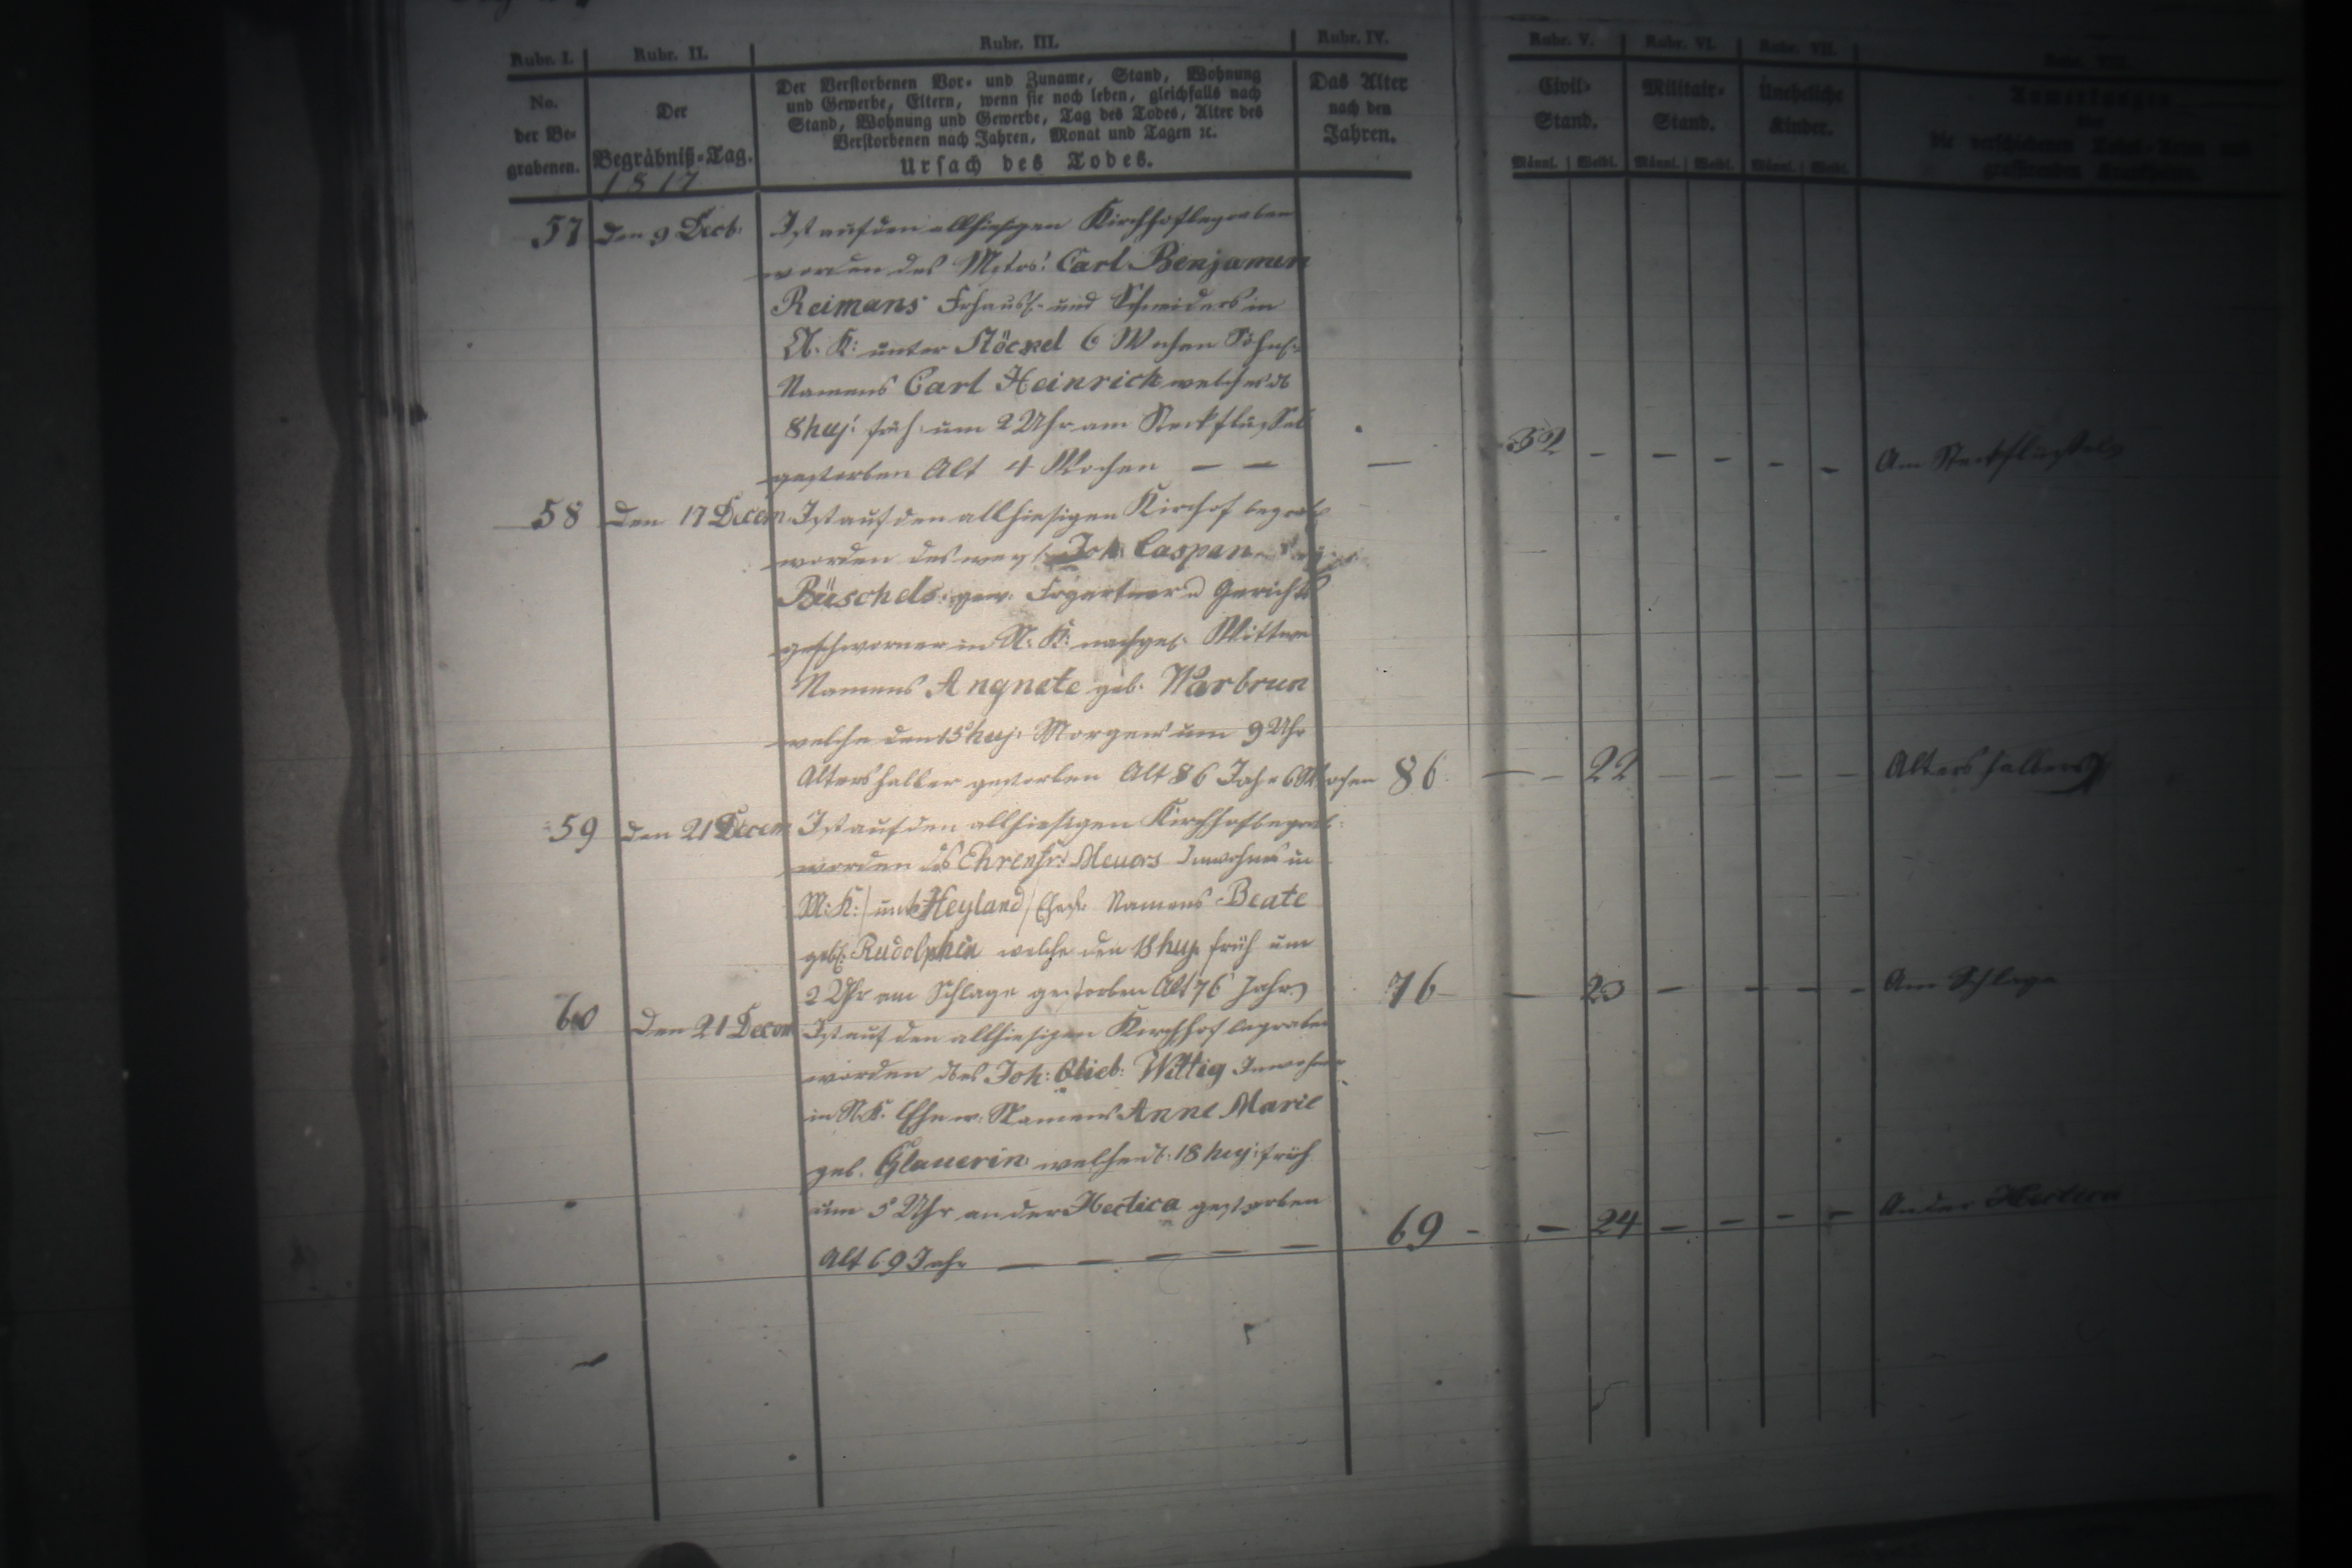 Rubr. I. Rubr. II. Rubr. III. Rubr. IV. Rubr. V. Rubr. VI. Rubr. VII.
No. der Be- grabenen.
Der Begräbniß-Tag.
1817
Der Verstorbenen Vor- und Zuname, Stand, Wohnung
und Gewerbe, Eltern, wenn sie noch leben, gleichfalls nach
Stand, Wohnung und Gewerbe, Tag des Todes, Alter des
Verstorbenen nach Jahren, Monat und Tagen ꝛc.
Ursach des Todes.
Das Alter
nach den
Jahren.
Civil-
Stand.
Männl. Weibl.
Militair-
Stand.
Männl. Weibl.
Uneheliche
Kinder.
Männl. Weibl.
Anmerkungen
die verschiedenen Todes-Arten und
grassirenden Krankheiten.
57 Den 9 Decb: Ist auf den allhiesigen Kirchhof begraben
worden des Mstrs: Carl Benjamin
Reimans Frhausl. und Schneiders in
N. K: unter 6 Wochen Söhnl:
Namens Carl Heinrich welches d
8 huj: früh um 2 Uhr am Steckflusse
gestorben Alt 4 Wochen — — — 32 - - - - - Am Steckflusse
58 Den 17 Decem Ist auf den allhiesigen Kirchof begrab
worden des weyl. Joh: Caspar
Büschels gew. Frgärtner u Gerichts
geschworner in N. K: nachgel. Wittwe
Namens Angnete geb. Warbrun
welche den 15 huj: Morgens um 9 Uhr
Altershalber gestorben Alt 86 Jahr 6 Wochen 86 — - 22 - - - - Altershalber
59 Den 21 Decem Ist auf den allhiesigen Kirchhof begrab:
worden des Ehrenfr: Meuers Inwohner in
M: K: /unt Heyland/ Ehefr: Namens Beate
geb: Rudolphin welche den 18 huj. früh um
2 Uhr am Schlage gestorben Alt 76 Jahr 76 — 23 - - - - Am Schlage
60 Den 21 Decem Ist auf den allhiesigen Kirchhof begraben
worden des Joh: Glieb: Wittig Inwohner
in N. K. Ehew: Namens Anne Marie
geb. Glauerin welche d. 18 huj: früh
um 5 Uhr an der Hectica gestorben
Alt 69 Jahr — — — — — 69 - — 24 - - - - An der Hectica